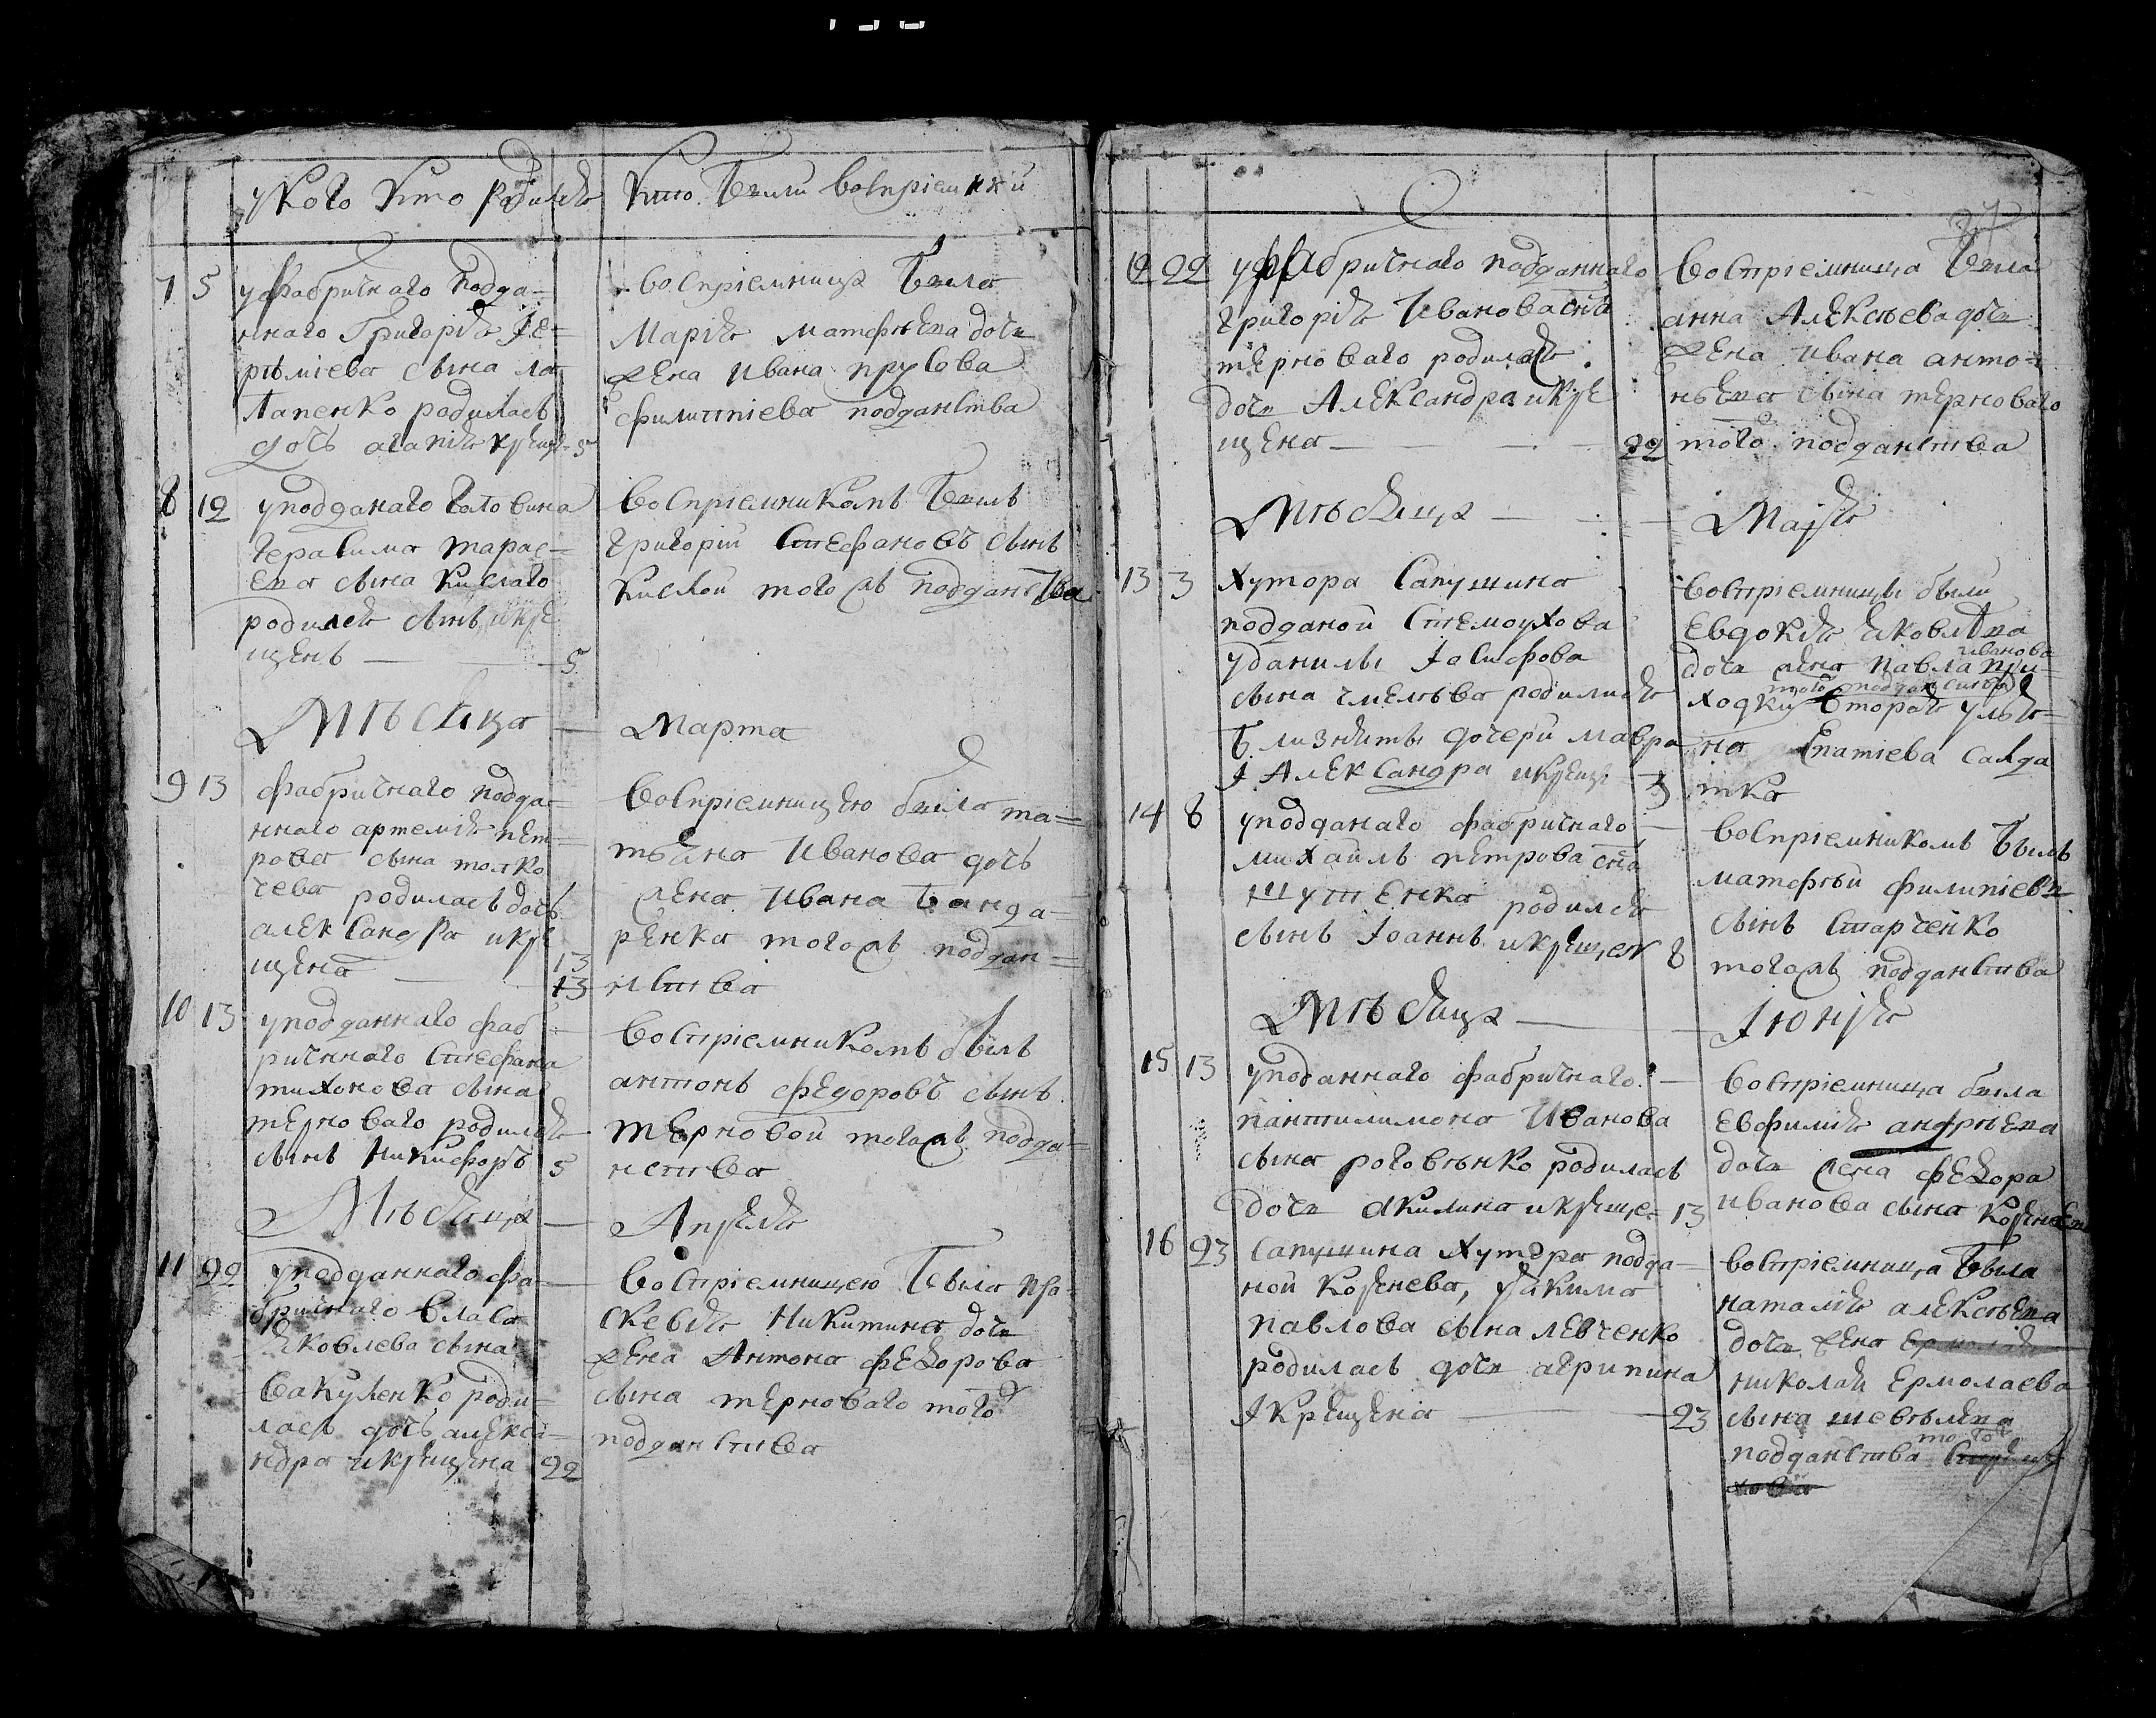 у кого кто родился
кто были восприемники
7 5 у фабричнаго подда-
ннаго Григорія Іе-
рѣміева сына ла
Лапенко родилась
дочь агапія крещ- 5
восприемница была
Марія матфѣева дочь
жена Ивана прусова
филиппіева подданства
8 12 у подданаго головина
герасима тарас-
ева сына кислаго
родился сынъ и кре
щенъ — 5
восприемникомъ былъ
григорій Стефановъ сынъ
кислой тогожъ подданства
Мѣсяца — марта
9 13 фабричнаго подда-
ннаго артемія пет-
рова сына толко
чева родилась дочь
александра и кре
щена — 13
13
восприемницею была та-
тьяна Иванова дочь
жена Ивана Бонда-
ренка тогожъ поддан-
нства
10 13 у подданнаго фаб-
ричннаго Стефана
тихонова сына
терноваго родился
сынъ Никифоръ 5
восприемникомъ былъ
антонъ федоровъ сынъ
терновой тогожъ подда-
нства
Мѣсяца — Апреля
11 22 у подданнаго фа-
бричнаго Власа
Яковлева сына
Вакуленко роди-
лась дочь алекса-
ндра и крещена 22
восприемницею была пра-
скевія Никитина дочь
жена Антона федорова
сына терноваго того ж
подданства
27
12 22 у фабричнаго подданнаго
григорія Иванова сна
терноваго родилася
дочь Александра и кре
щена — 22
восприемница была
анна Алексѣева дочь
жена ивана анто-
нѣева сына терноваго
того ж подданства
Мѣсяца — Маія
13 3 хутора Сапушина
подданой Стемоухова
у данилы Іосифова
сына чмелѣва родились
близняты дочери мавра
і Александра и крещ- 3
восприемницы были
Евдокія яковлева
иванова
дочь жена павла при-
того подданства
ходки вторая улья-
на Епатіева салда
тка
14 8 у подданаго фабричнаго
михаилъ петрова сна
шутенка родился
сынъ Іоаннъ и крещен 8
восприемникомъ былъ
матфѣй филипіевъ
сынъ Старченко
тогожъ подданства
Мѣсяца — Іюнія
15 13 у подданнаго фабричнаго
пантилимона Иванова
сына роговѣнко родилась
дочь акилина и креще- 13
восприемница была
Евфимія андрѣева
дочь жена федора
иванова сына коренева
16 23 сапушина хутора подда-
ной коренева, у якима
павлова сына левченко
родилась дочь агрипина
і крещена — 23
восприемница была
наталія алексѣева
дочь жена ермолая
николая Ермолаева
сына шевѣлева
того ж
подданства